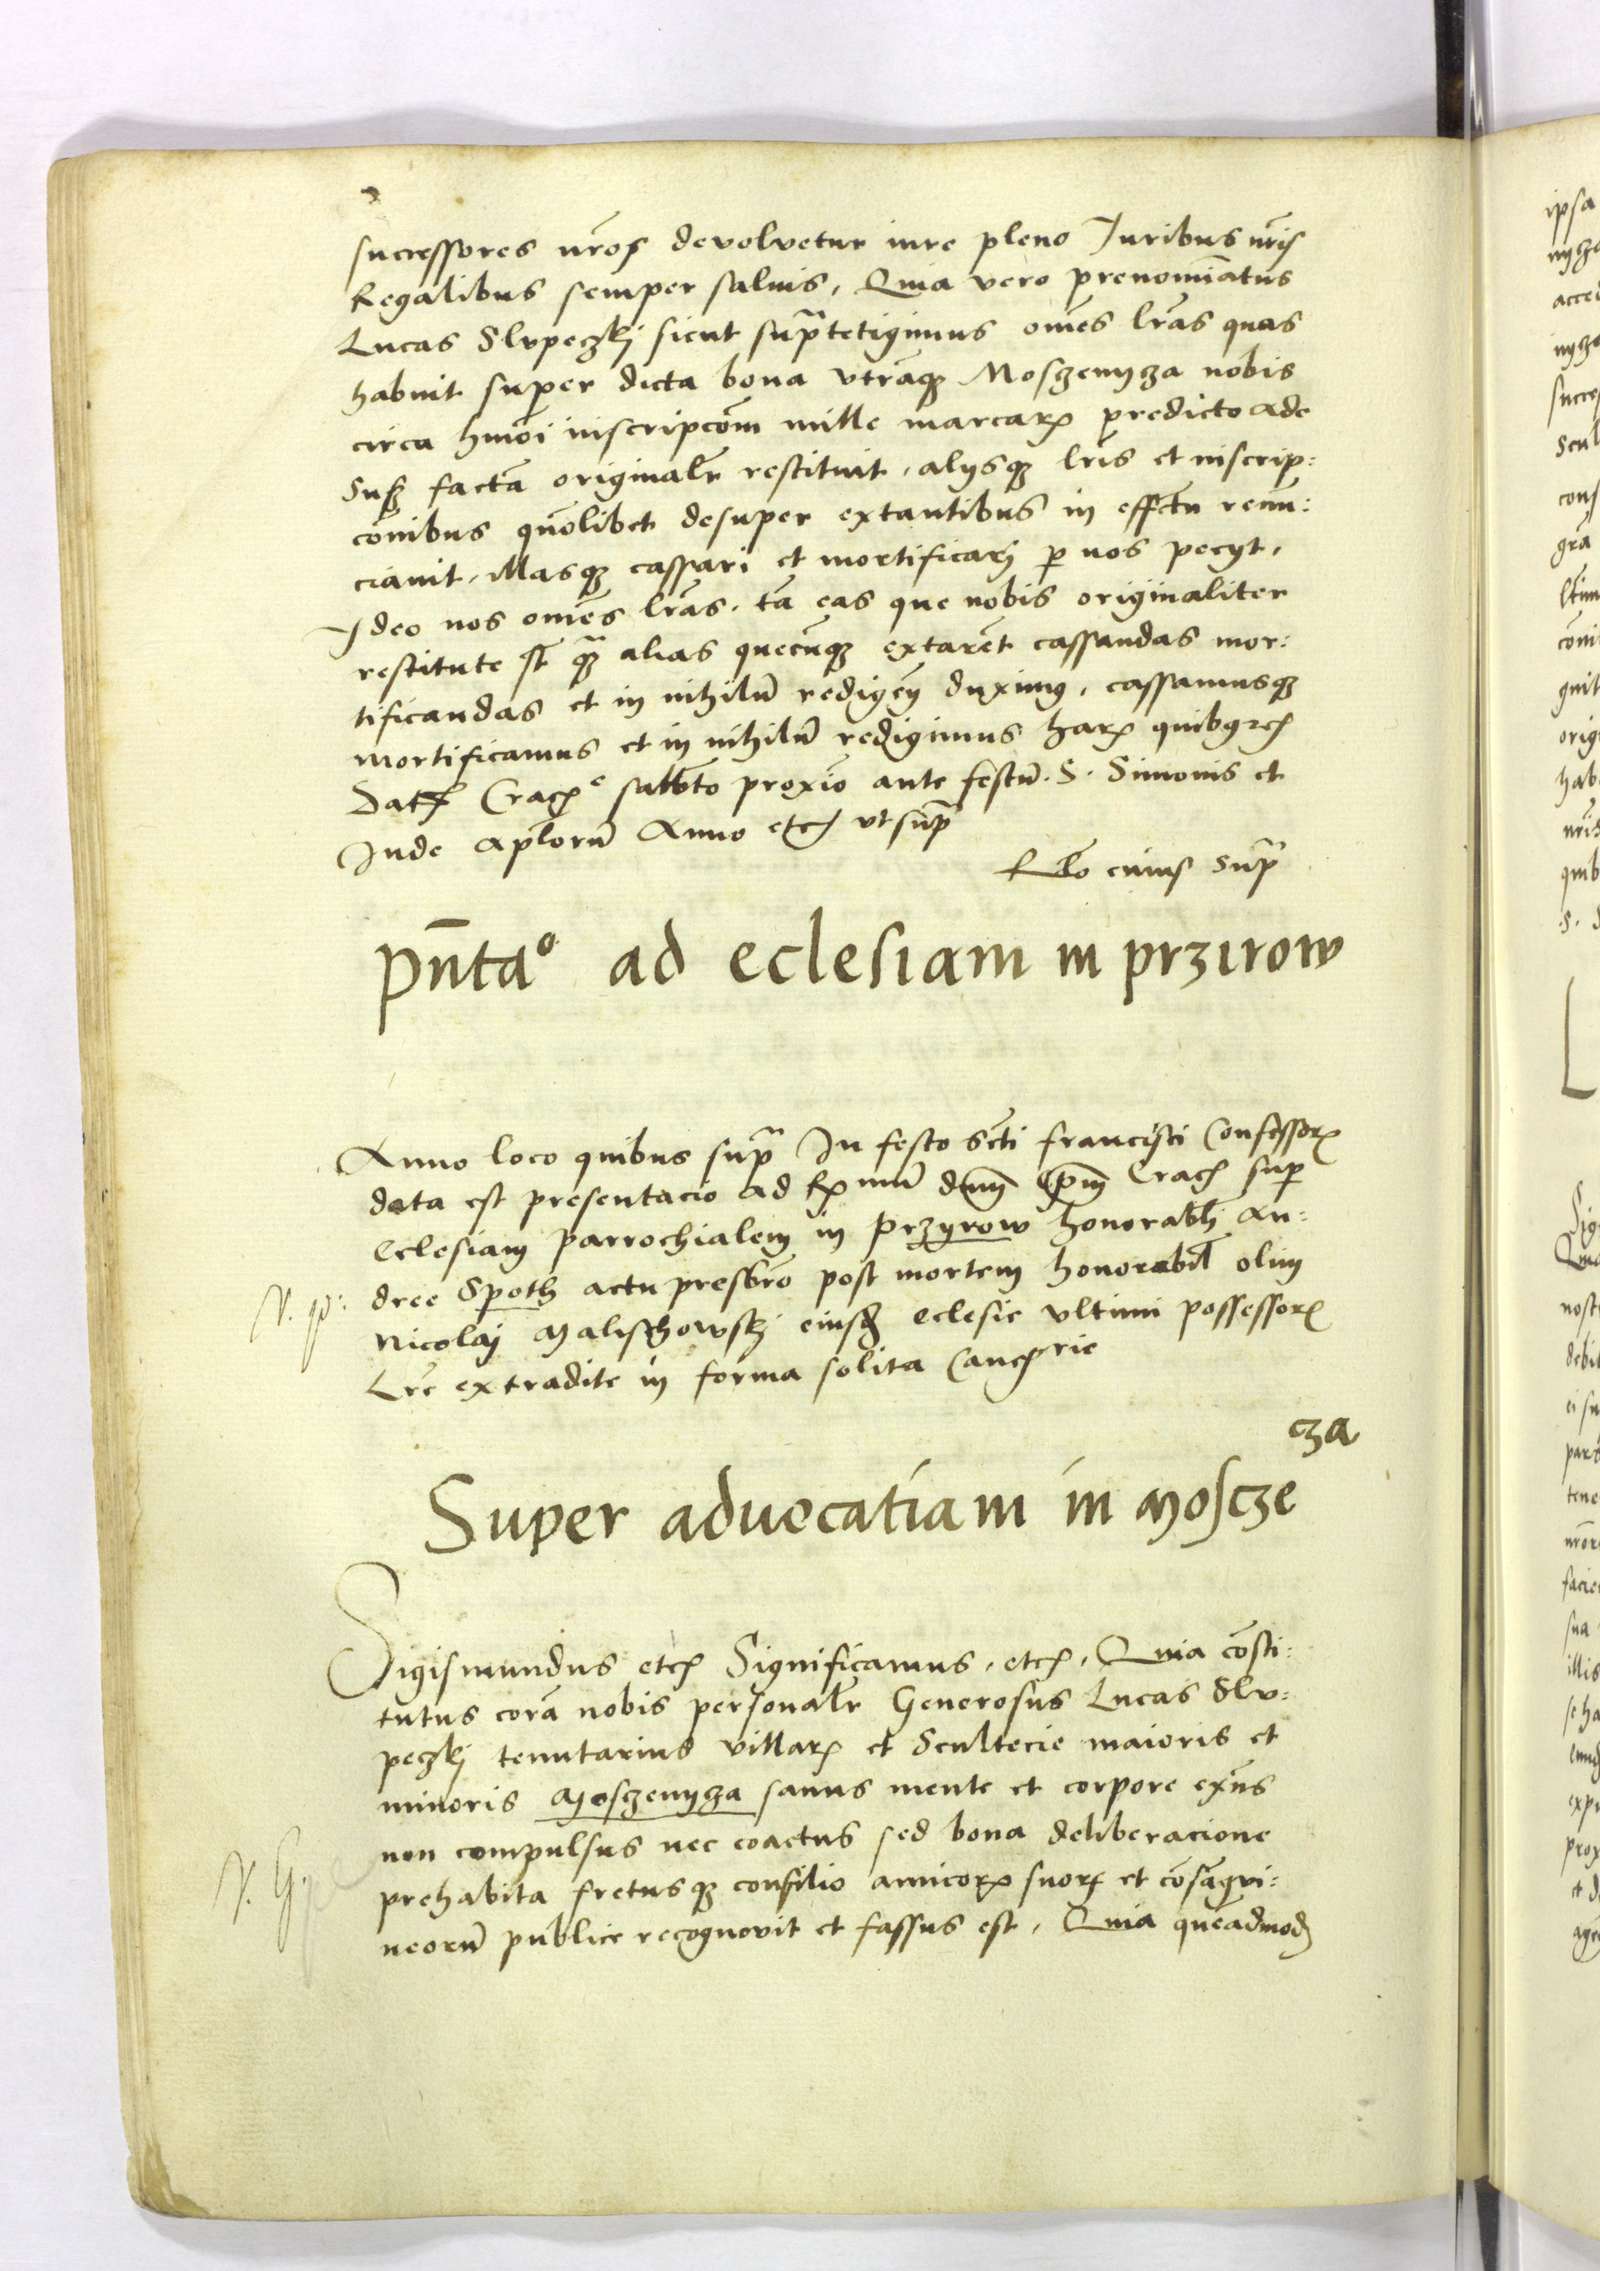 successores nr̄os devolvetur iure pleno Juribus nr̄is
Regalibus semper salvis, Quia vero prenomīatus
Lucas Slupeczkj sicut supr̄a tetigimus om̄es lr̄as quas
habuit super dicta bona vtrāq₃ Mosczenycza nobis
circa hmōi inscripcōem mille marcarꝝ predicto Ade
Susz factā originalr̄ restituit, alysq₃ lr̄is et inscrip:
cōnibus quōlibet desuper extantibus in effectu renū:
ciavit, Illasq₃ cassari et mortificarj p nos pecyt,
Ideo nos om̄es lr̄as, tā eas que nobis originaliter
restitute st̄ q̄ alias quecūq₃ extarēt cassandas mor:
tificandas et in nihilū redigēn duximꝯ, cassamusq₃
mortificamus et in nihilū redigimus harꝝ quibꝯ etcꝭ
Datꝭ Cracꝭ sabbto proxīo ante festū. S. Simonis et
Jude Aplorū Anno etcꝭ vt supr̄a
Rl̄o cuius supr̄a
Pn̄tao ad eclesiam in przirow
Anno loco quibus supr̄a In festo Sc̄ti francisci Confessorꝭ
data est presentacio ad Rx mū dnm̄ Ep̄m Cracꝭ sup
Eclesiam parrochialem in przyrow honorabłj An:
dree Spoth actu presbr̄o post mortem honorabił olim
Nicolaj Malischowskj eiusꝫ Eclesie vltimi possessorꝭ
Lr̄e extradite in forma solita Cancꝭrie
cza
Super aduocatiam in Moscze
Sigismundus etcꝭ Significamus, etcꝭ, Quia cōsti:
tutus corā nobis personalr̄ Generosus Lucas Slu:
peczkj tenutarius villarꝝ et Scultecie maioris et
minoris Mosczenycza sanus mente et corpore exn̄s
non compulsus nec coactus sed bona deliberacione
prehabita fretusq₃ consilio amicorꝝ suorꝝ et cōsāgvi:
neorū publice recognovit et fassus est, Quia queadmodꝫ